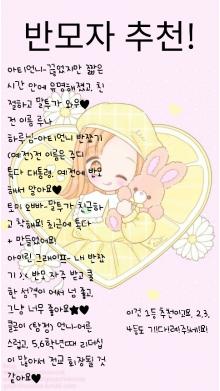 반모자 추천!
아티언니-끊었지만 짧은
시간 안에 유명해졌고, 친
절하고 말투가 와우♥
전 이름 루나
하르님-아티언니 반짤기
(예전)전 이름은 쥬디
톡다 대통령. 예전에 반모
해서 알아요♥
토미 오빠-말투가 친근하
고 착해요! 최근에 톡다
+ 만들었어요!
아이린 그레이프- 내 반짤
기 :< 반모 자주 받고 쿨
한 성격이 어서 넘 좋고,
그냥 너무 좋아요★♥
클로이 <탐정> 언니-어른
스럽고, 5,6학년때 리더쉽
이 많아서 전교 회장될 것
같아요♥
이건 1등 추천이고요, 2,3,
4등도 기!다!려!주!세!요!